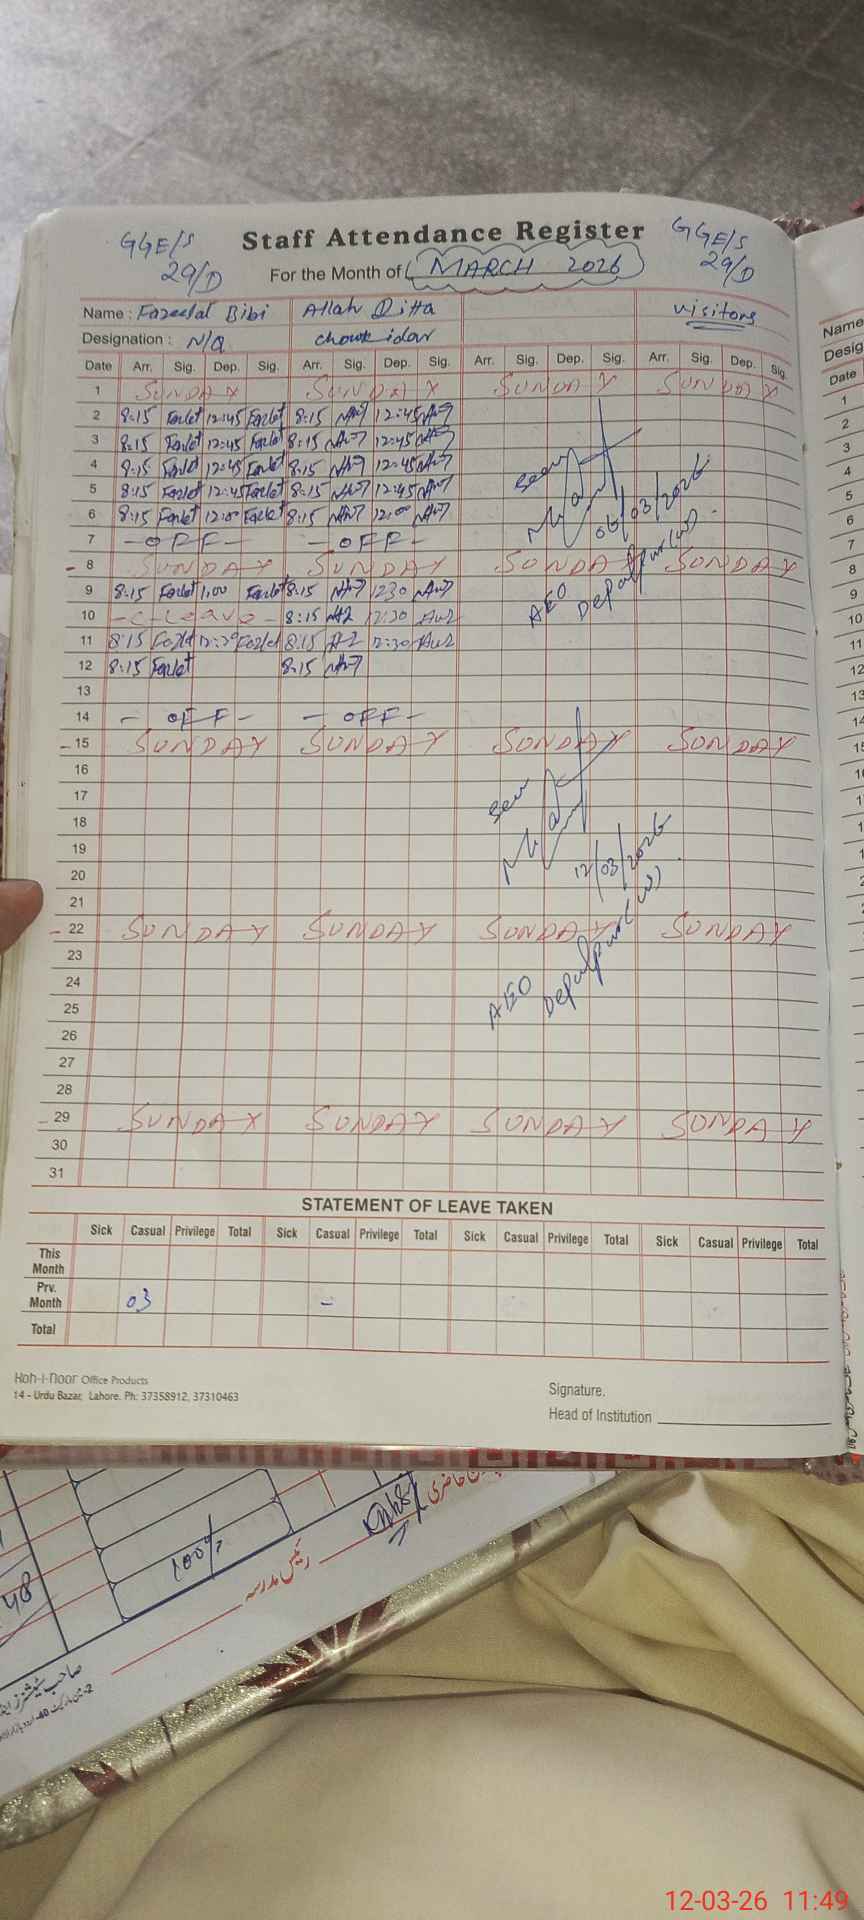 GGE/S Staff Attendance Register GGE/S
29/D For the Month of (MARCH 2026) 29/D
Name : Fazeelat Bibi Allah Ditta visitors
Designation : N/Q chowkidar
Date Arr. Sig. Dep. Sig. Arr. Sig. Dep. Sig. Arr. Sig. Dep. Sig. Arr. Sig. Dep. Sig.
1 SUNDAY SUNDAY SUNDAY SUNDAY
2 8:15 12:45 8:15 12:45
3 8:15 12:45 8:15 12:45
4 8:15 12:45 8:15 12:45
5 8:15 12:45 8:15 12:45
6 8:15 12:00 8:15 12:00
7 - OFF - - OFF -
- 8 SUNDAY SUNDAY SUNDAY SUNDAY
9 8:15 1:00 8:15 12:30
10 - C-Leave - 8:15 12:30
11 8:15 8:15 12:30
12 8:15 8:15
13
14 - OFF - - OFF -
- 15 SUNDAY SUNDAY SUNDAY SUNDAY
16
17
18
19
20
21
- 22 SUNDAY SUNDAY SUNDAY SUNDAY
23
24
25
26
27
28
- 29 SUNDAY SUNDAY SUNDAY SUNDAY
30
31
Seen
06/03/2026
AEO
Depalpur (w)
Seen
12/03/2026
AEO
Depalpur (w)
STATEMENT OF LEAVE TAKEN
Sick Casual Privilege Total Sick Casual Privilege Total Sick Casual Privilege Total Sick Casual Privilege Total
This
Month
Prv.
Month 03 -
Total
Koh-i-noor Office Products
14 - Urdu Bazar, Lahore. Ph: 37358912, 37310463
Signature.
Head of Institution
Name
Desig
Date
1
2
3
4
5
6
7
8
9
10
11
12
13
14
15
16
17
حاضری
100%
رئیس مدرسہ
48
12-03-26 11:49